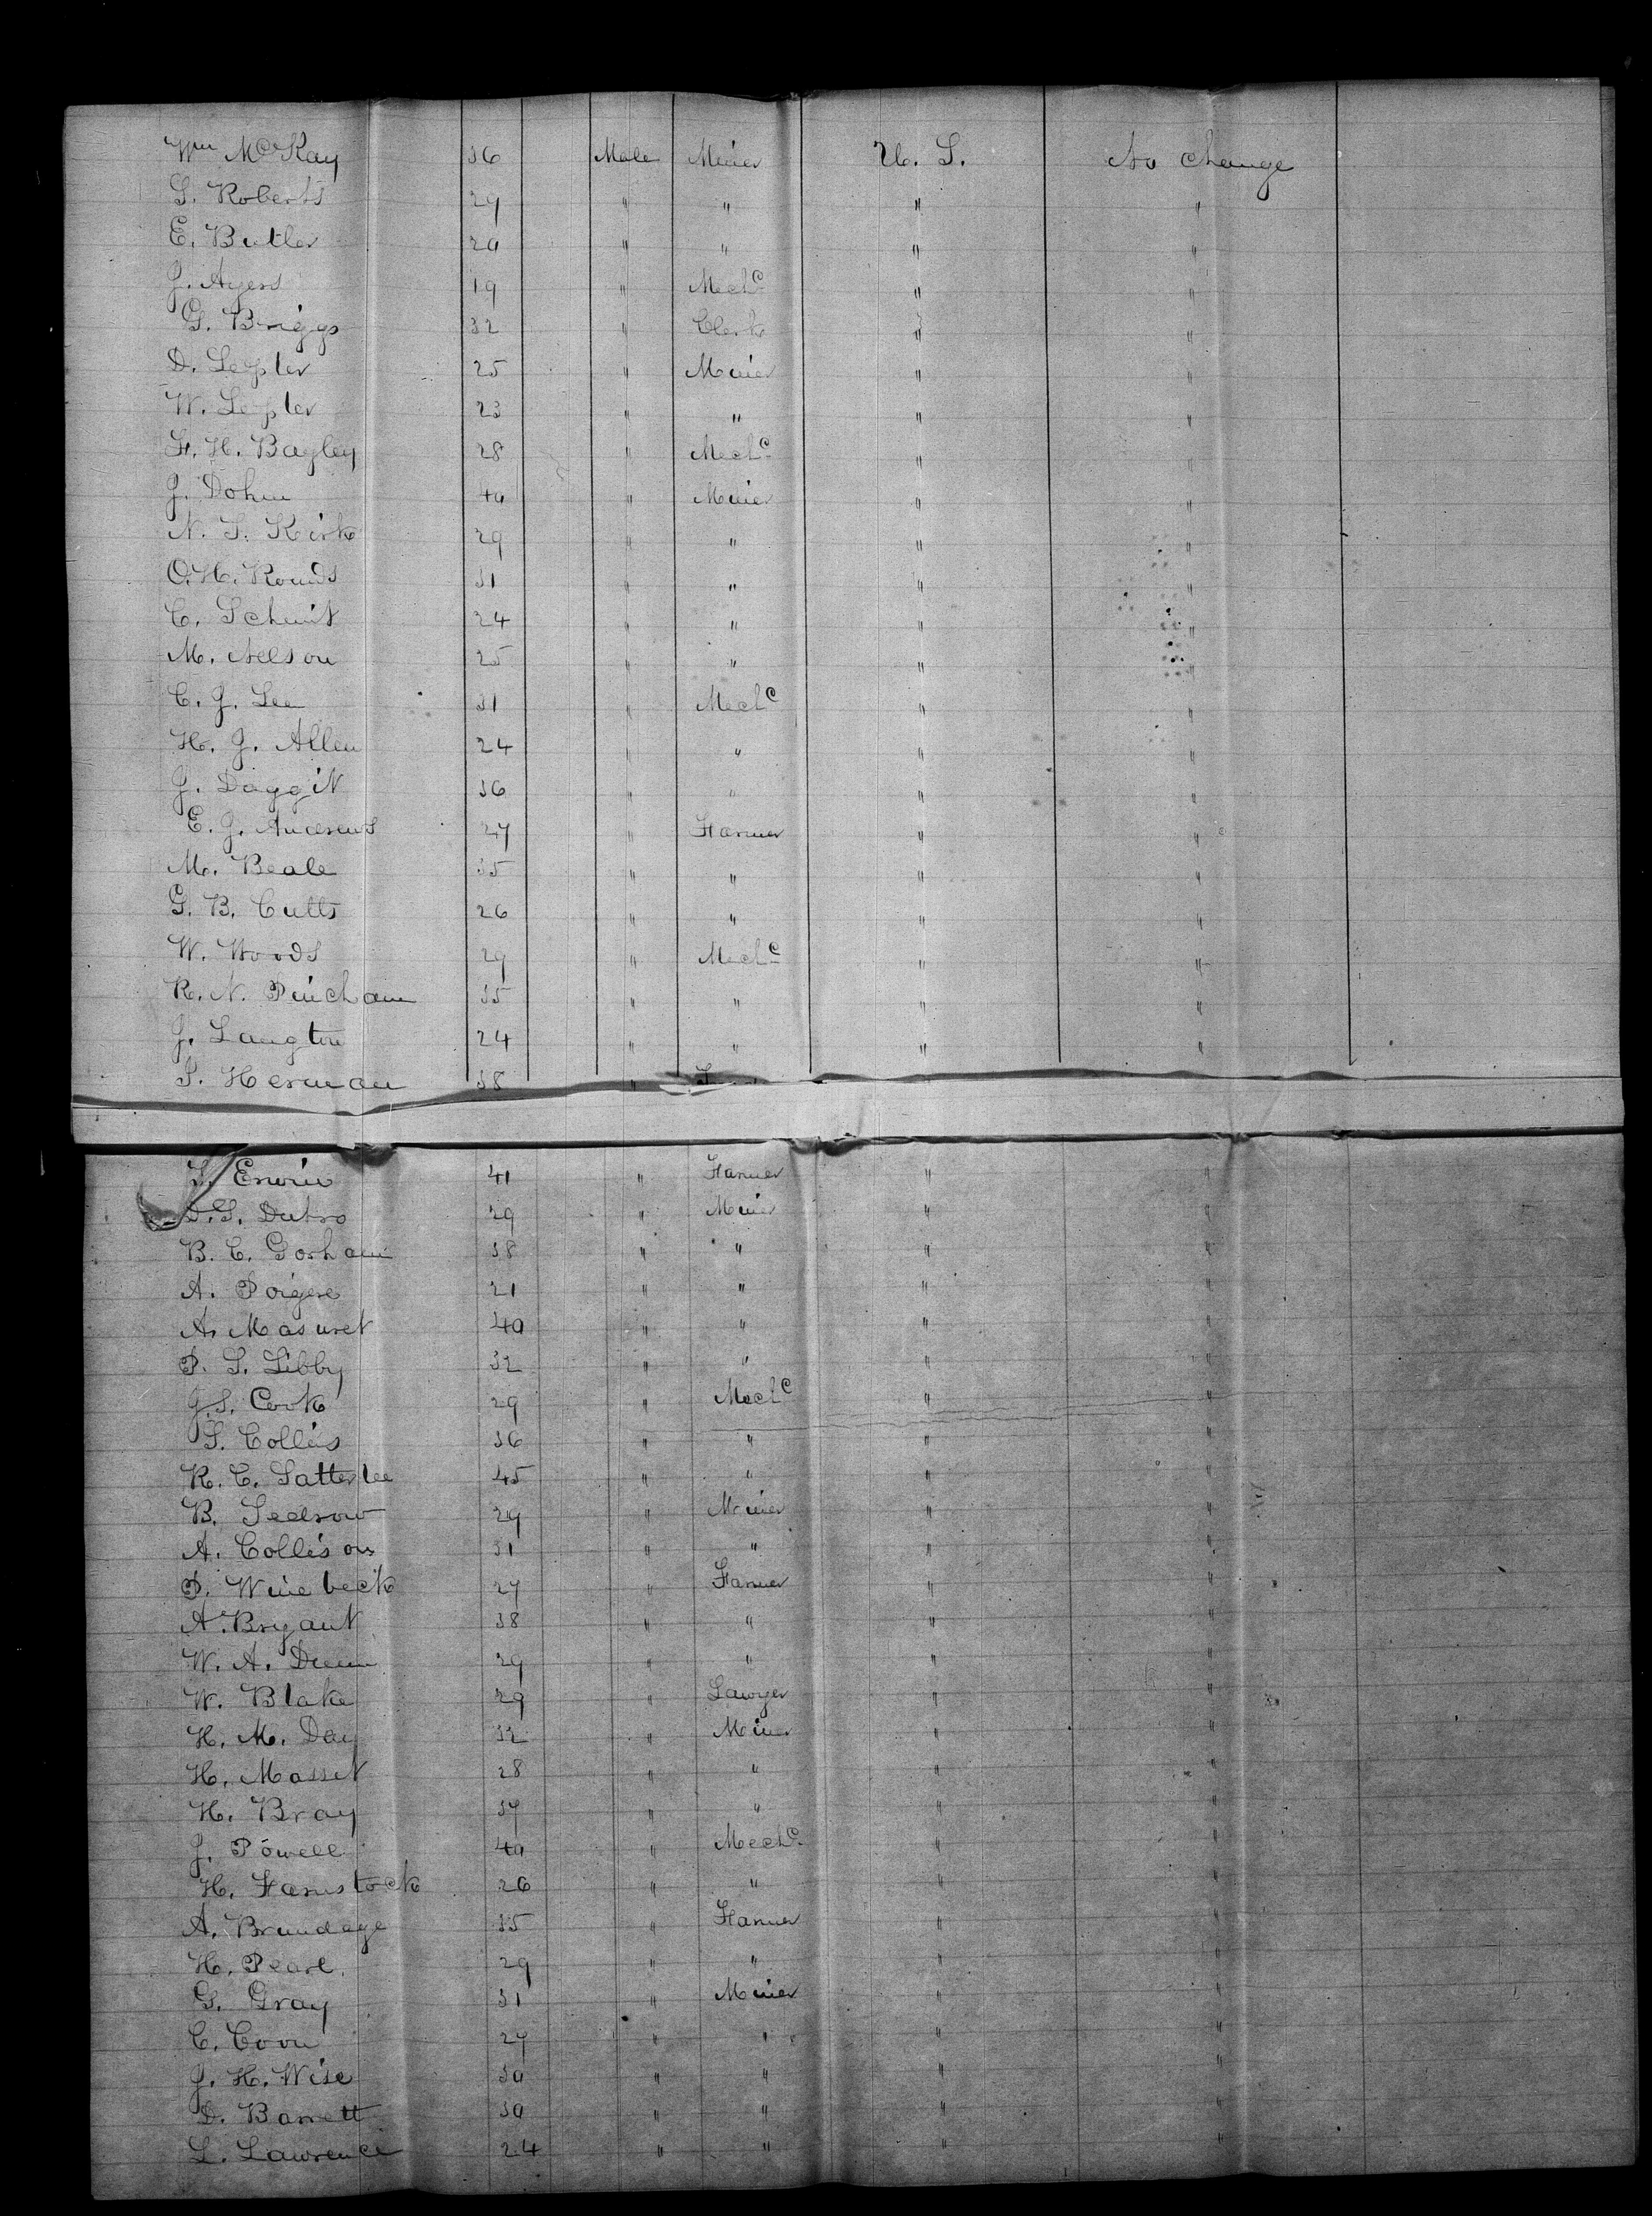 Wm McKay 36 Male Miner U. S. No change
S. Roberts 29 " " " "
E. Butler 20 " " " "
J. Ayers 19 " Mechc " "
G. Briggs 32 " Clerk " "
D. Lepler 25 " Miner " "
W. Lepler 23 " " " "
F. H. Bagley 28 " Mechc " "
J. Dohm 40 " Miner " "
N. S. Kirk 29 " " " "
O. H. Rounds 31 " " " "
C. Schmit 24 " " " "
M. Nelson 25 " " " "
C. J. Lee 31 " Mechc " "
H. J. Allen 24 " " " "
J. Daggit 36 " " " "
E. J. Andrews 27 " Farmer " "
M. Beale 35 " " " "
G. B. Cutts 26 " " " "
W. Woods 29 " Mechc " "
R. N. Pincham 35 " " " "
J. Langton 24 " " " "
S. Herman 38 "
S. Erwin 41 " Farmer " "
D. S. Dutro 29 " Miner " "
B. C. Gorham 38 " " " "
A. Poigere 21 " " " "
A. Masuret 40 " " " "
P. S. Libby 32 " " " "
J. S. Cook 29 " Mechc " "
S. Collins 36 " " " "
R. C. Satterlee 45 " " " "
B. Ledrow 29 " Miner " "
A. Collison 31 " " " "
P. Winebeck 27 " Farmer " "
A. Bryant 38 " " " "
W. A. Dunn 29 " " " "
W. Blake 29 " Lawyer " "
H. M. Day 32 " Miner " "
H. Masset 28 " " " "
H. Bray 37 " " " "
J. Powell 40 " Mechc " "
H. Farnstock 26 " " " "
A. Brundage 35 " Farmer " "
H. Pearl 29 " " " "
G. Gray 31 " Miner " "
C. Coon 27 " " " "
J. H. Wise 30 " " " "
D. Barrett 30 " " " "
L. Lawrence 24 " " " "